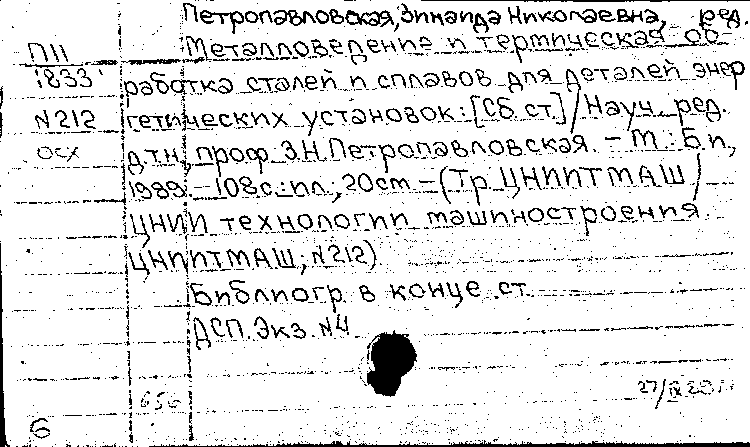 Петропавловская, Зинаида Николаевна, ред.
П11 Металловедение и термическая об-
1833 работка сталей и сплавов для деталей энер
N212 гетических установок: [Сб. ст.] / Науч. ред.
осх д.т.н., проф. З.Н. Петропавловская. – М.: Б.и,
1989. – 108с.: ил., 20см – (Тр. ЦНИИТМАШ /
ЦНИИ технологии машиностроения
ЦНИИТМАШ; N212)
Библиогр. в конце ст.
ДСП. Экз. N4
656
6